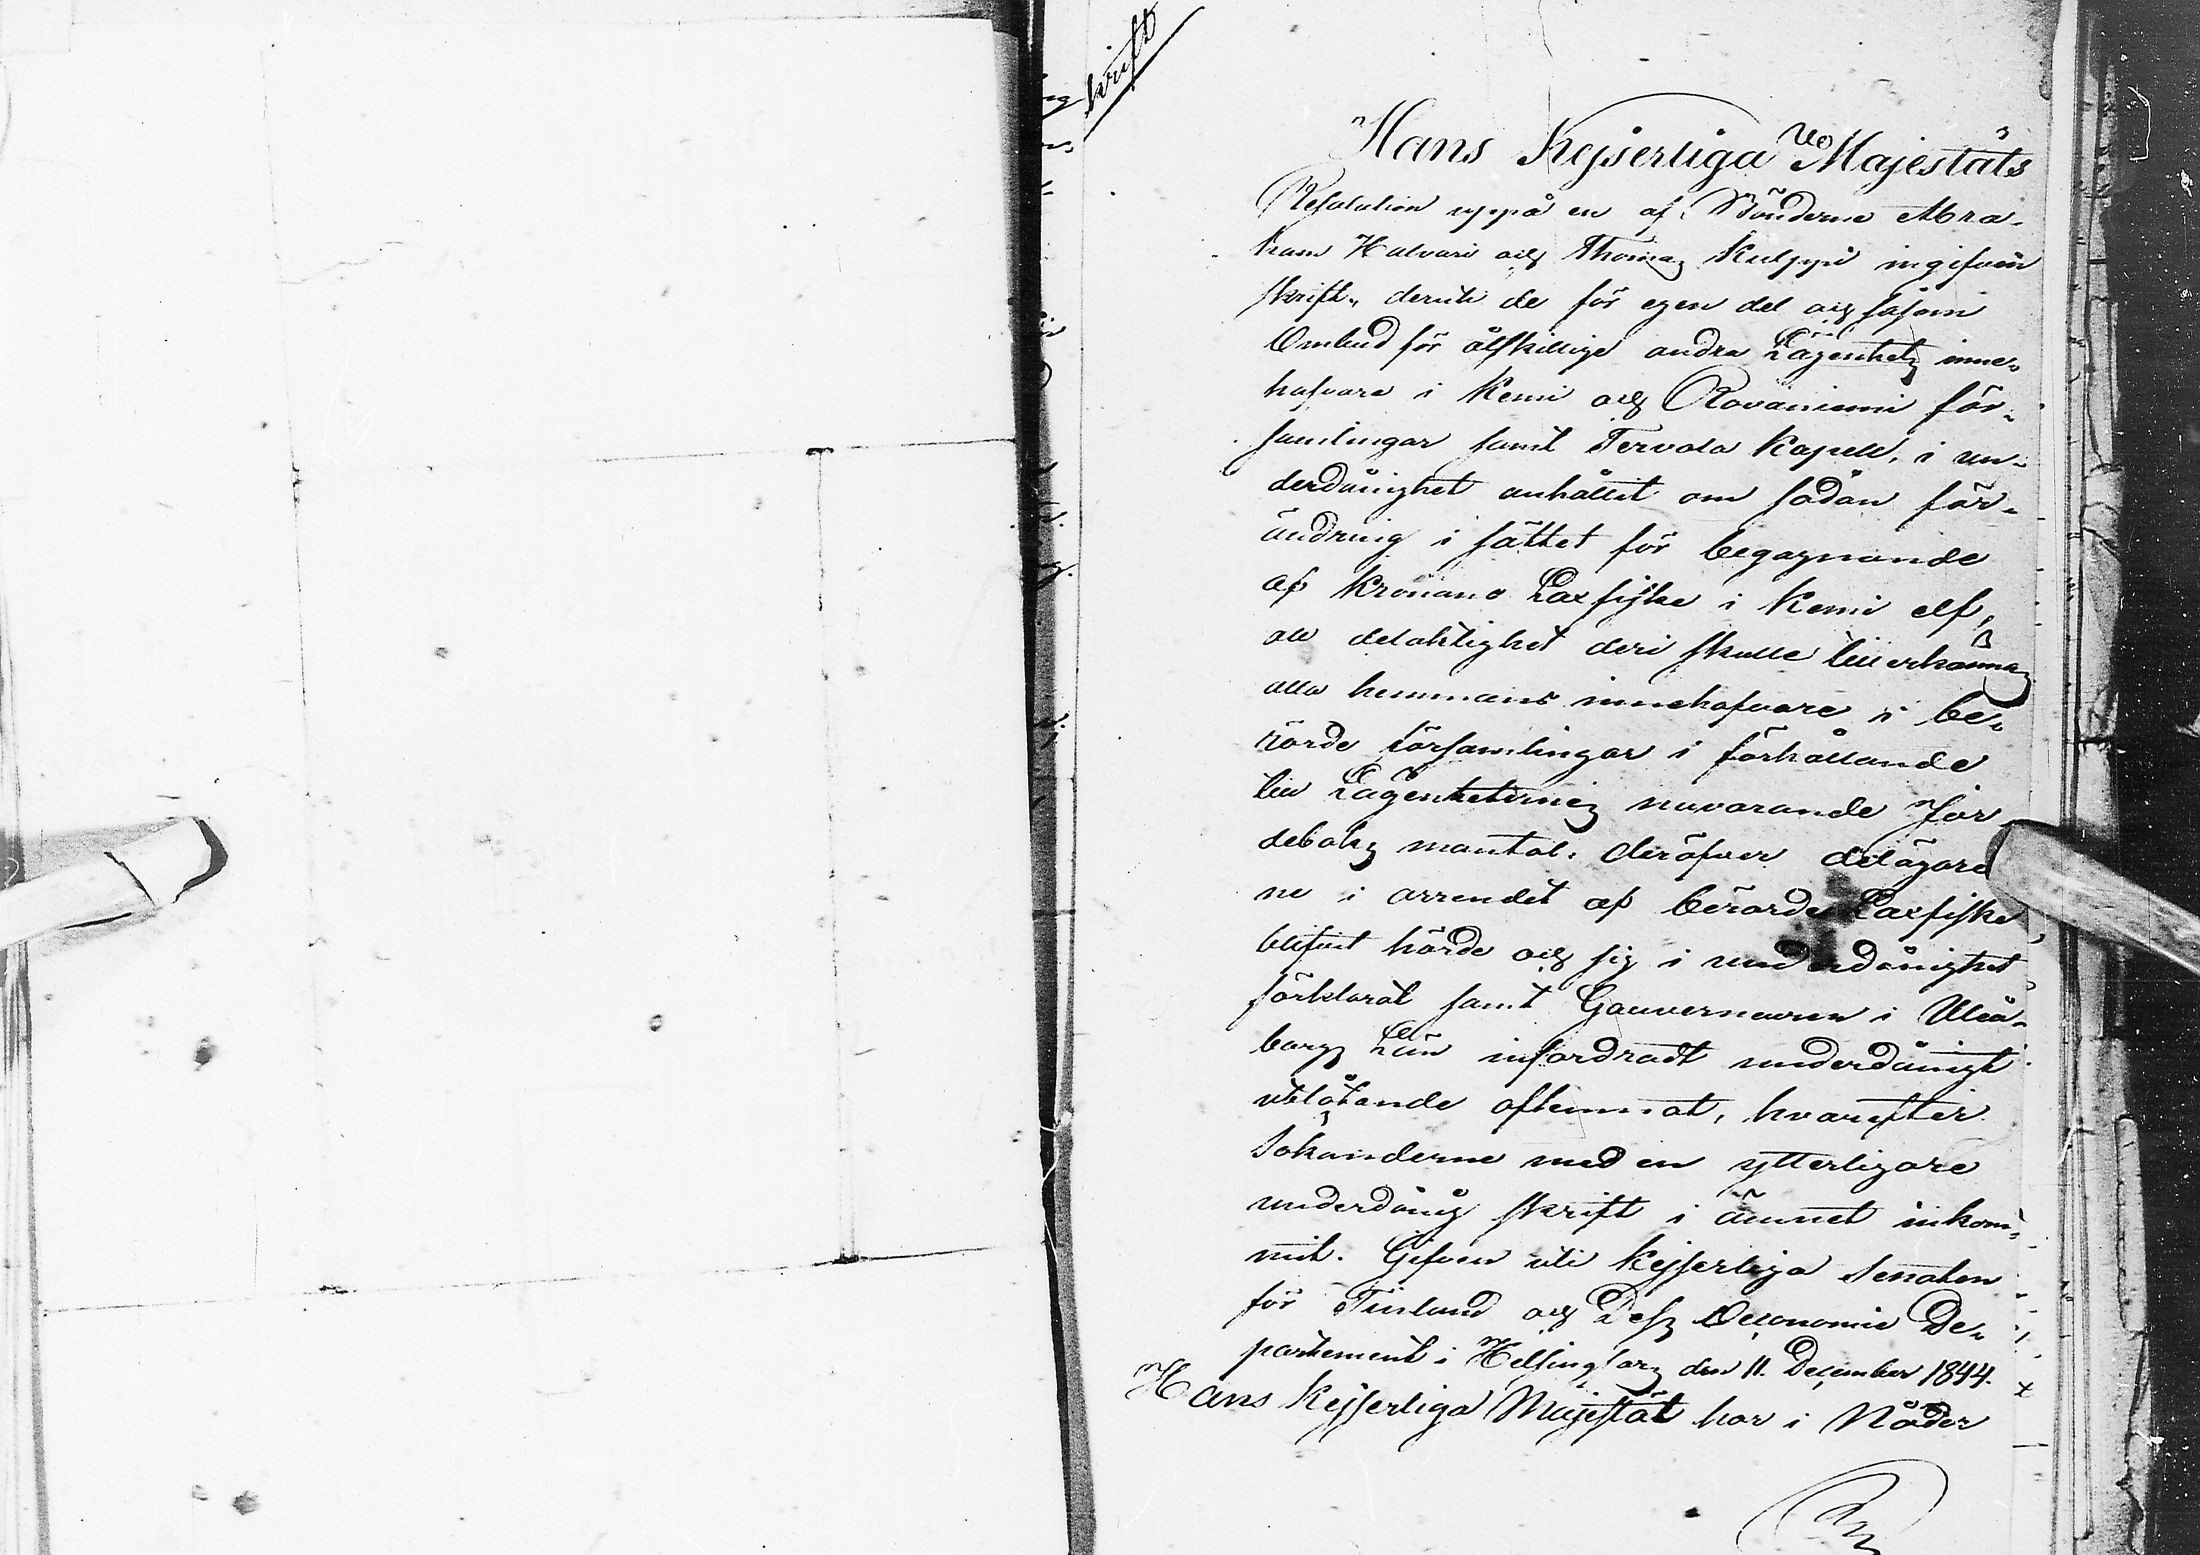 krift
Hans Kejserliga Majestäts
Resolution uppå en af Bönderne Abra-
ham Halvari och Thomas Kulppi ingifven
skrift, deruti de för egen del och såsom
Ombud för åtskillige andra Lägenhets inne-
hafvare i Kemi och Rovaniemi för-
samlingar samt Tervola Kapell, i un-
derdånighet anhållit om sådan för-
ändring i sättet för begagnande
af Kronans Laxfiske i Kemi elf,
att delaktighet deri skulle tillerkännas
alla hemmans innehafvare i be-
rörde församlingar i förhållande
till Lägenheternes nuvarande Jor
deboks mantal, deröfver delägare
ne i arrendet af berörde Laxfiske,
blifvit hörde och sig i underdånighet
förklarat samt Gouverneuren i Uleå-
borgs Län infordradt underdånigt
utlåtande afkemnat, hvarefter
Sökanderne med en ytterligare
underdånig skrift i ämnet inkom-
mit. Gifven uti Kejserliga Senaten
för Finland och Dess Oeconomie De-
partement i Helsingfors den 11. December 1844.
Hans Kejserliga Majestät har i Nåder